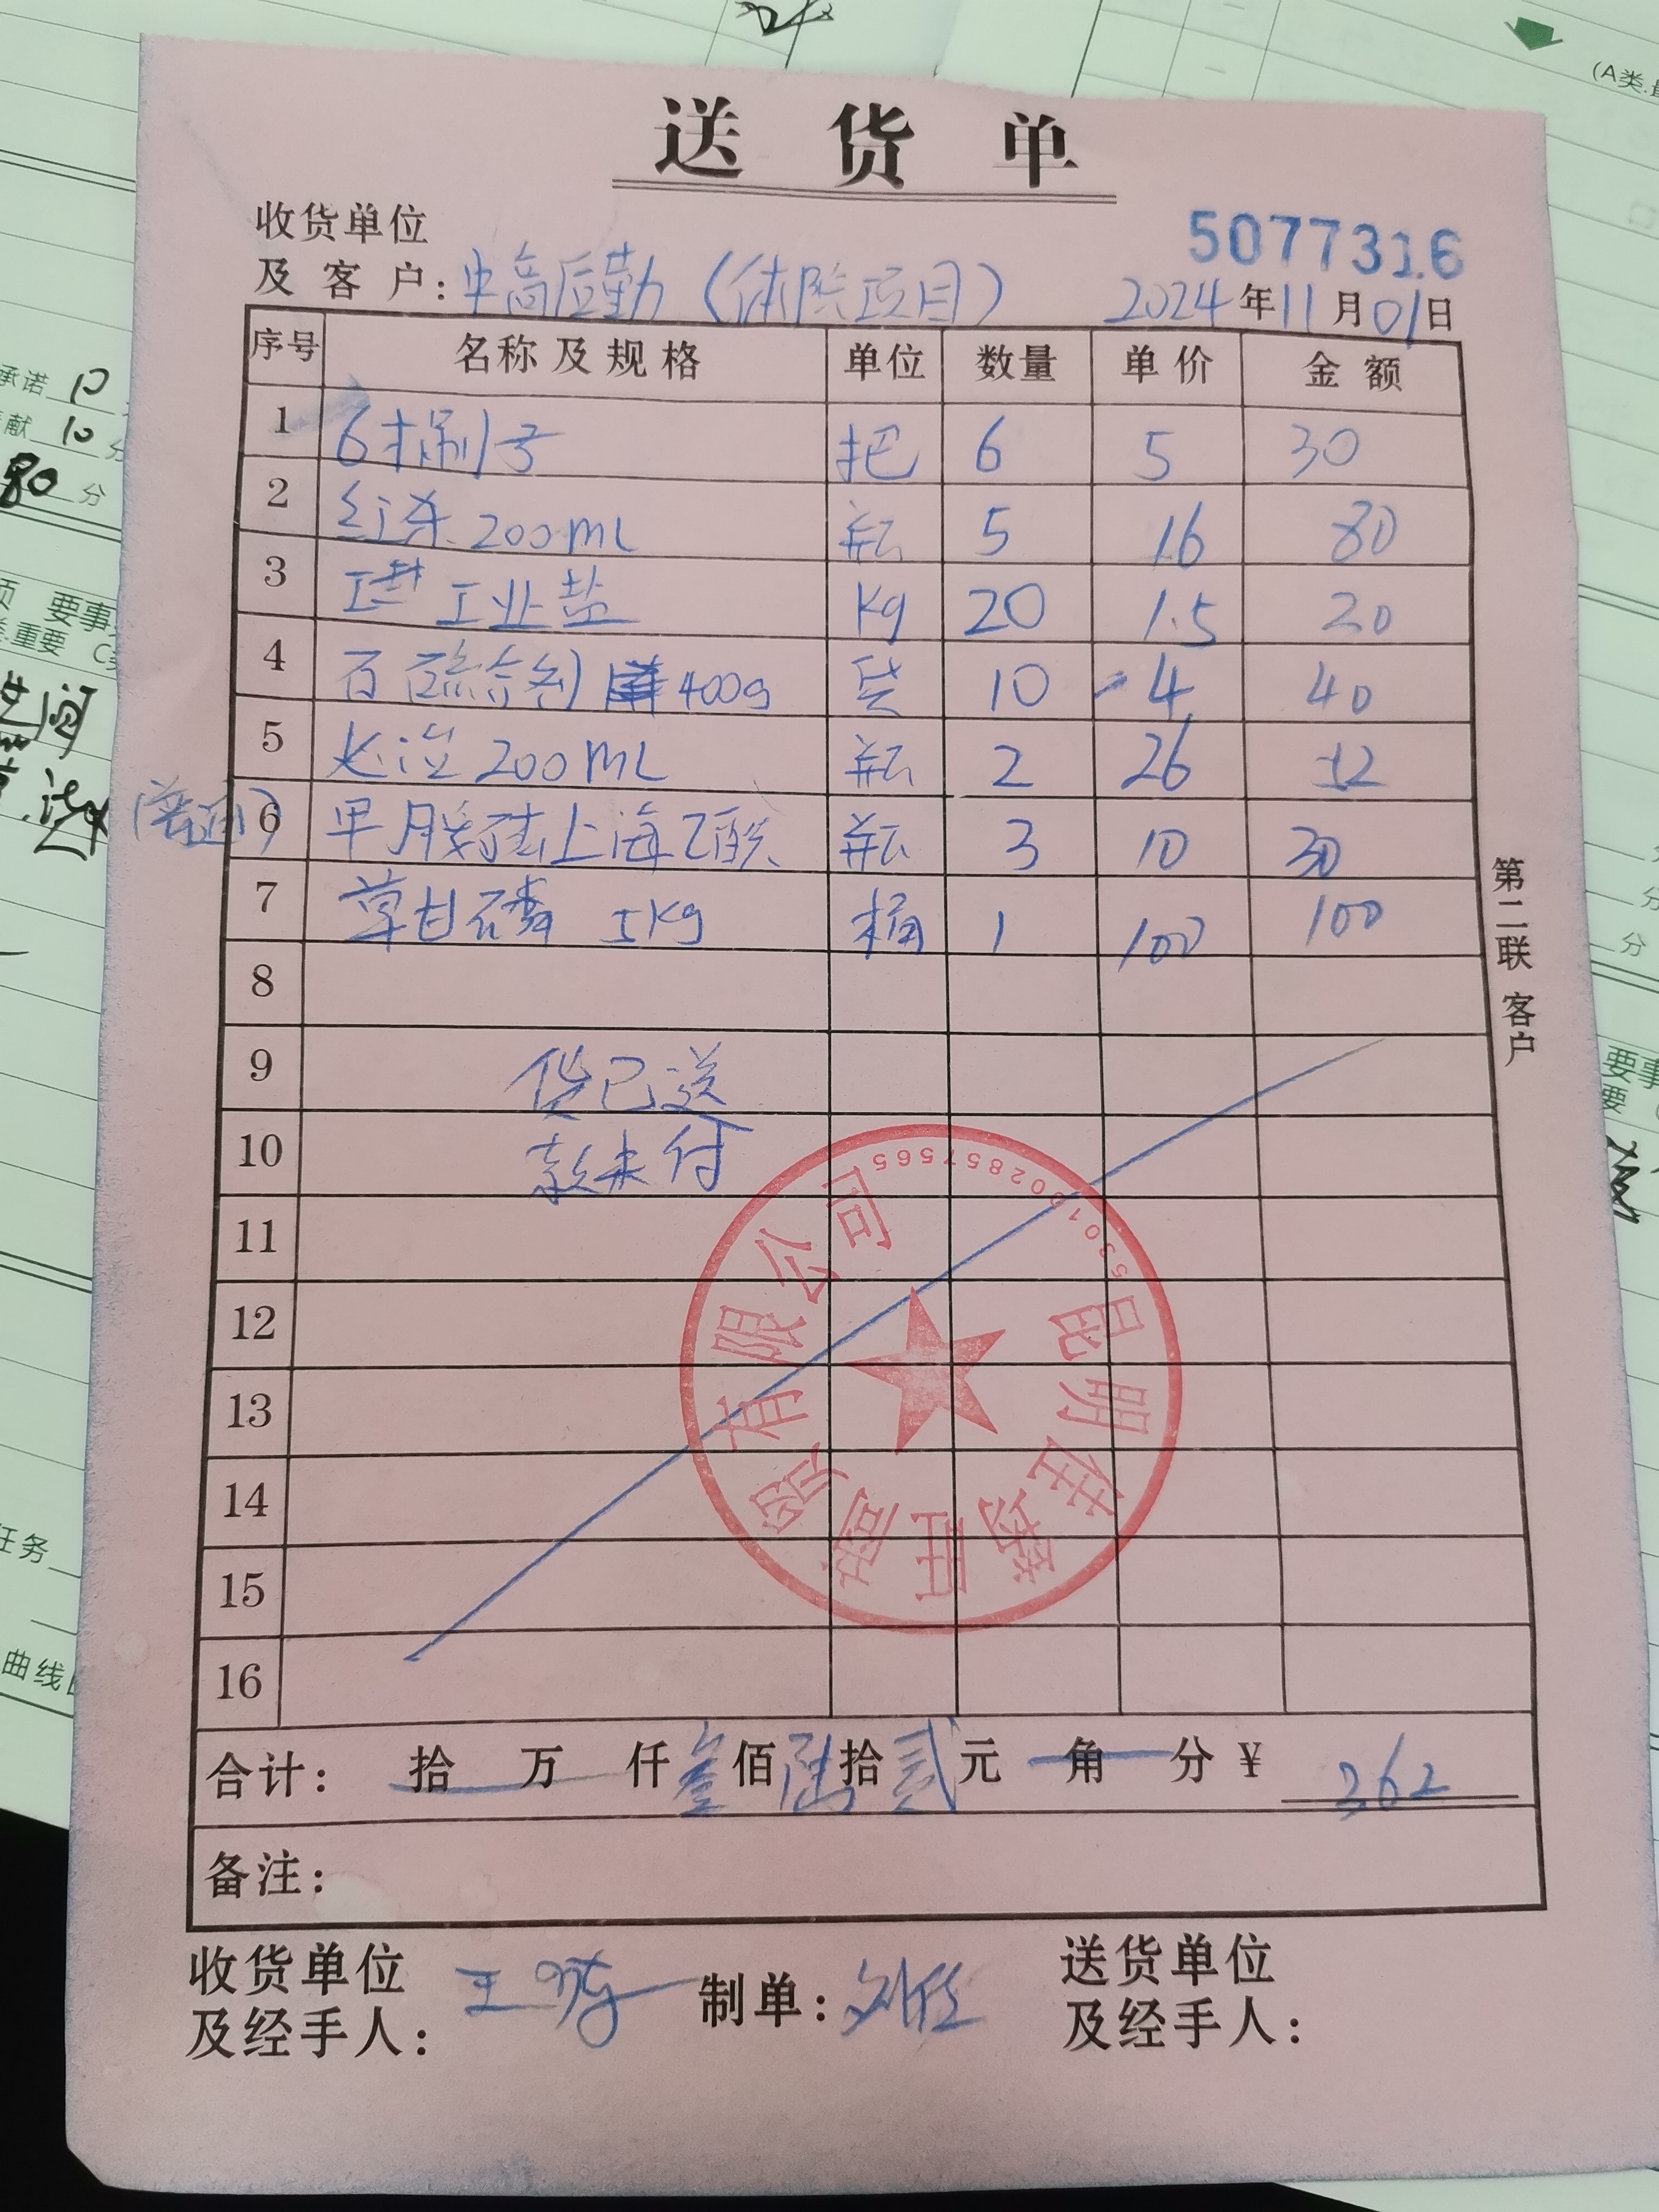 送货单
收货单位
及客户：中高后勤（体院项目）
5077316
2024年11月01日
序号 名称及规格 单位 数量 单价 金额
1 6寸刷子 把 6 5 30
2 红杀 200mL 瓶 5 16 80
3 工业盐 Kg 20 1.5 20
4 400g 袋 10 4 40
5 200mL 瓶 2 26 52
（普通）
6 上海 瓶 3 10 30
7 草甘磷 5Kg 桶 1 100 100
8
9 货已送
10 款未付
11
12
13
14
15
16
第二联 客户
昆明佳
旺
贸有限公司
5301302857565
合计： 拾 万 仟叁佰陆拾贰元 角 分 ¥ 362
备注：
收货单位
及经手人： 王
制单： 刘
送货单位
及经手人：
(A类.
承诺 10
献 10 分
80 分
要事
重要
任务
曲线
分
要事
要